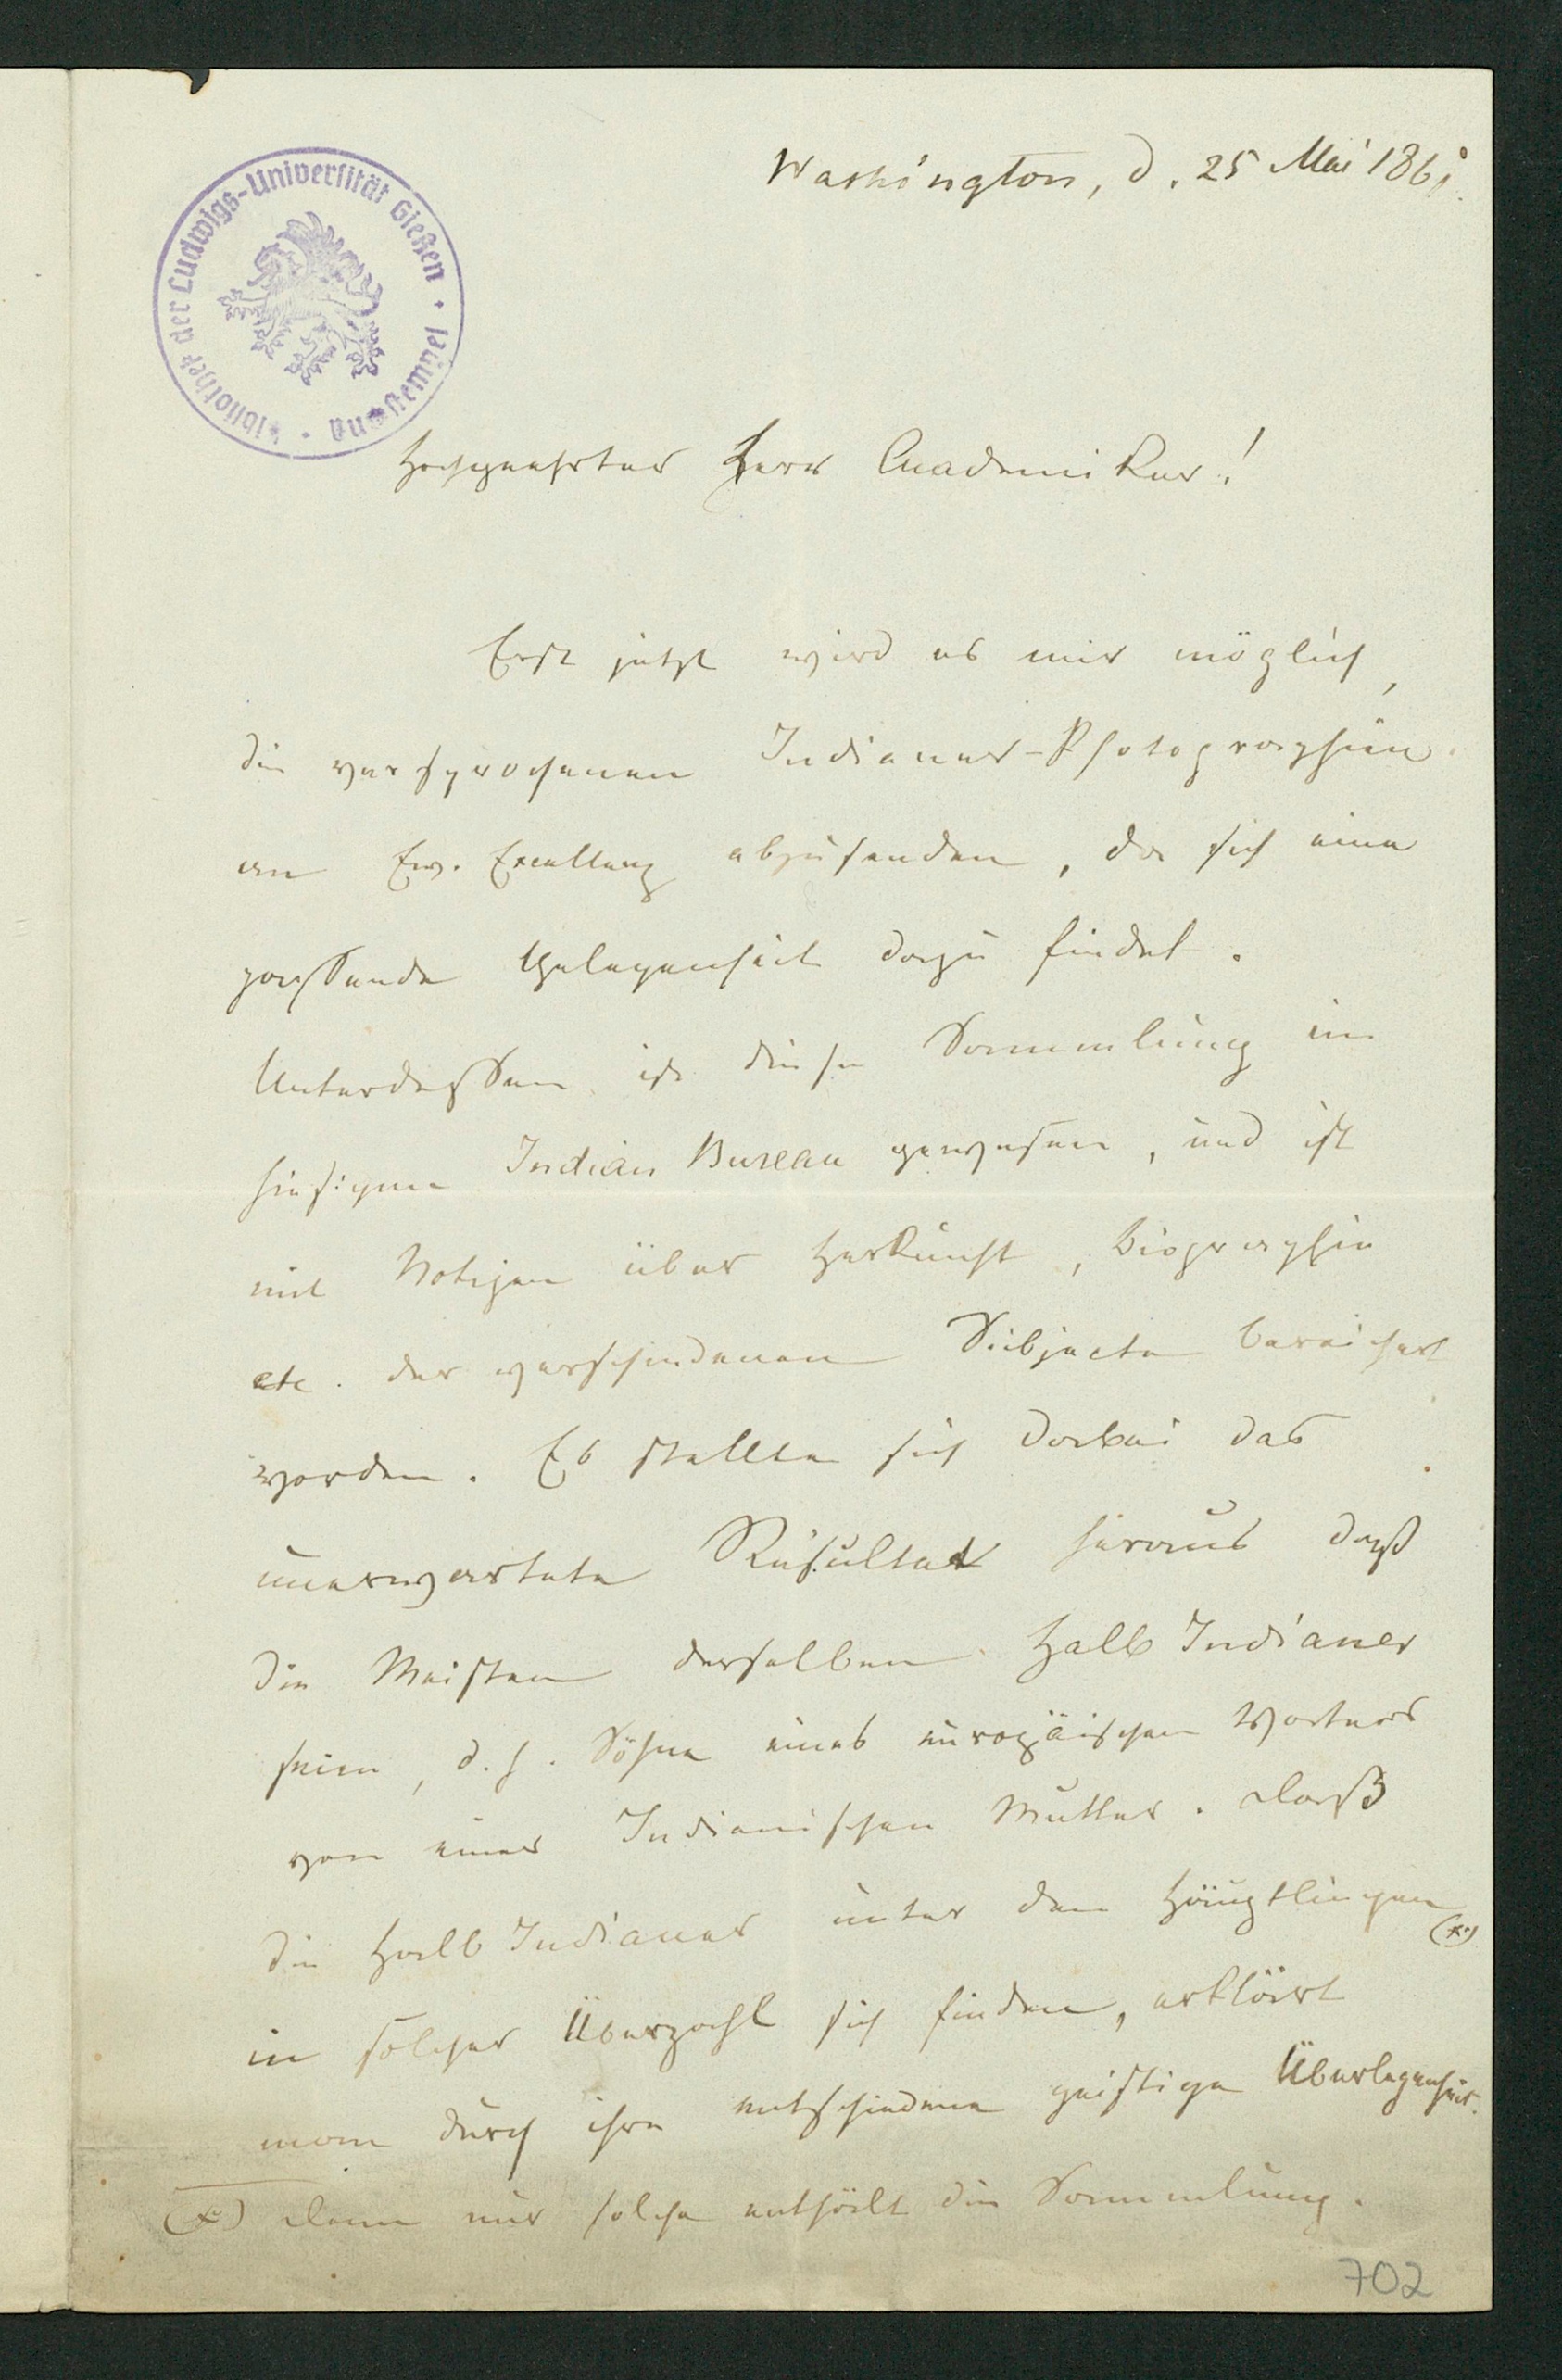 Washington, d. 25 Mai 1861.
Bibliothek der Ludwigs-Universität Gießen · Amtsstempel ·
Hochgeehrter Herr Academiker!
Erst jetzt wird es mir möglich,
die versprochenen Indianer-Photographien
an Ew. Excellenz abzusenden, da sich eine
passende Gelegenheit dazu findet.
Unterdessen ist diese Sammlung im
hiesigen Indian Bureau gewesen, und ist
mit Notizen über Herkunft, Biographie
etc. der verschiedenen Subjecte bereichert
worden. Es stellte sich dabei das
unerwartete Resultat heraus daß
die Meisten derselben Halb Indianer
seien, d. h. Söhne eines europäischen Vaters
von einer Indianischen Mutter. Daß
die Halb Indianer unter den Häuptlingen (x)
in solcher Überzahl sich finden, erklärt
man durch ihre entschiedene geistige Überlegenheit.
(x) Denn nur solche enthält die Sammlung.
702